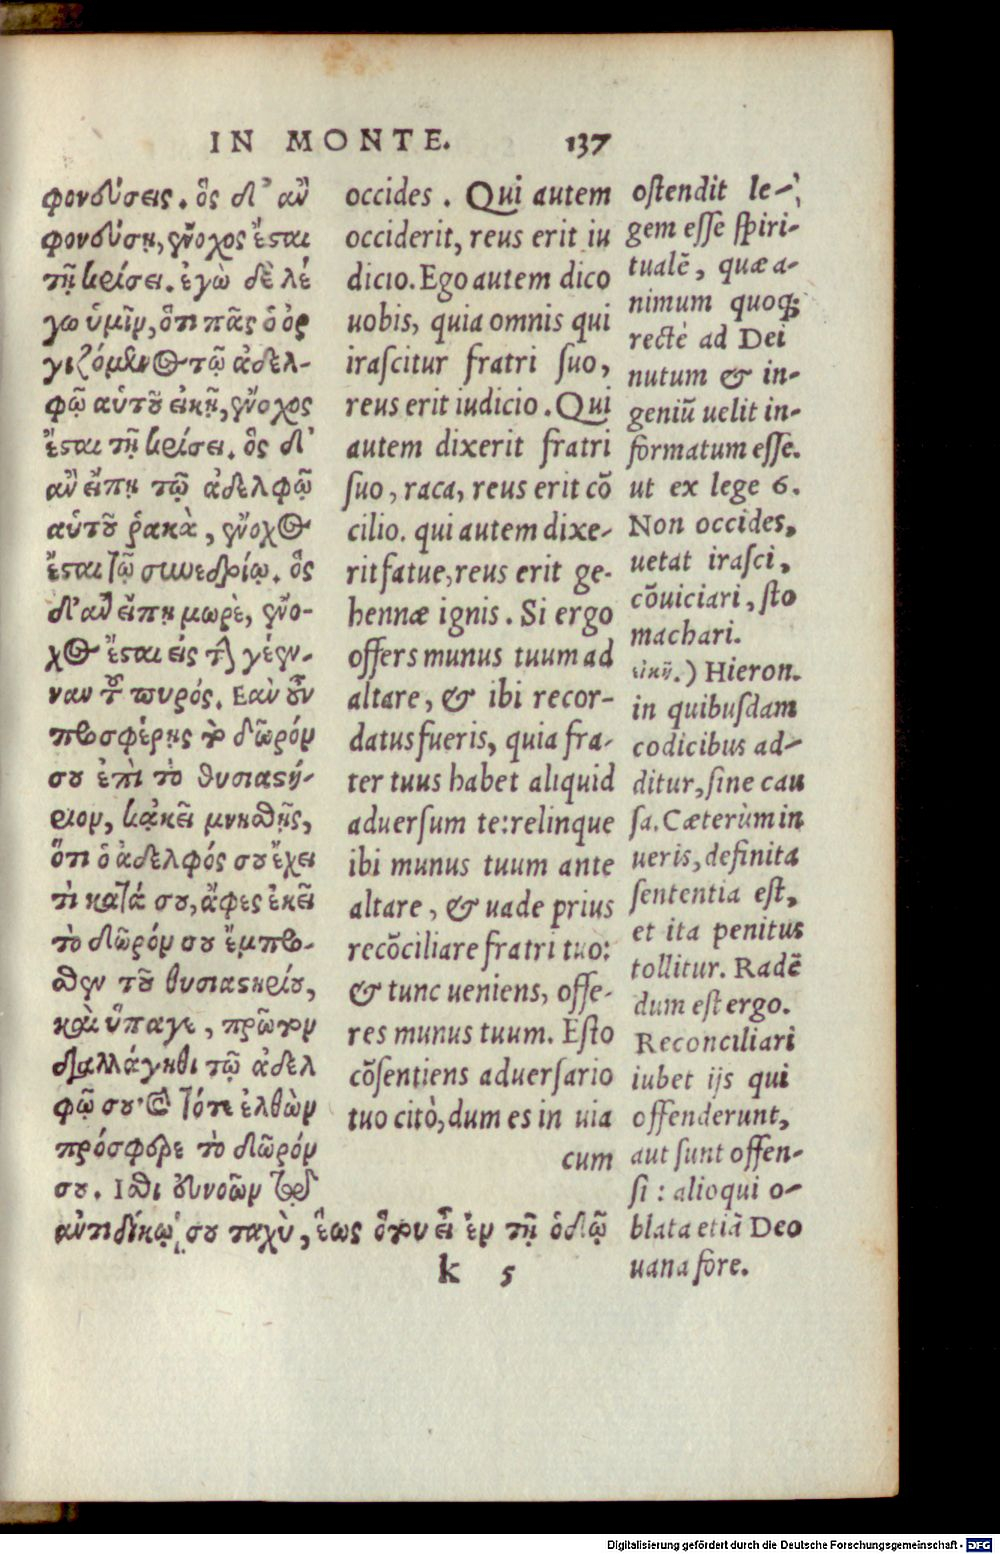 IN MONTE. 137
φονεύσεις. ὃς δ' ἂν
φονεύσῃ, ἔνοχος ἔσται
τῇ κρίσει. ἐγὼ δὲ λέ
γω ὑμῖν, ὅτι πᾶς ὁ ὀρ
γιζόμενος τῷ ἀδελ-
φῷ αὑτοῦ εἰκῆ, ἔνοχος
ἔσται τῇ κρίσει. ὃς δ'
ἂν εἴπῃ τῷ ἀδελφῷ
αὑτοῦ ῥακὰ, ἔνοχος
ἔσται τῷ συνεδρίῳ. ὃς
δ' ἂν εἴπῃ μωρὲ, ἔνο-
χος ἔσται εἰς τὴν γέεν-
ναν τοῦ πυρός. Εὰν οὖν
προσφέρῃς τὸ δῶρόν
σου ἐπὶ τὸ θυσιαστή-
ριον, κᾀκεῖ μνησθῇς,
ὅτι ὁ ἀδελφός σου ἔχει
τὶ κατά σου, ἄφες ἐκεῖ
τὸ δῶρόν σου ἔμπρο-
σθεν τοῦ θυσιαστηρίου,
καὶ ὕπαγε, πρῶτον
διαλλάγηθι τῷ ἀδελ
φῷ σου· καὶ τότε ἐλθὼν
πρόσφερε τὸ δῶρόν
σου. Ισθι εὐνοῶν τῷ
ἀντιδίκῳ σου ταχὺ, ἕως ὅτου εἶ ἐν τῇ ὁδῷ
occides. Qui autem
occiderit, reus erit iu
dicio. Ego autem dico
uobis, quia omnis qui
irascitur fratri suo,
reus erit iudicio. Qui
autem dixerit fratri
suo, raca, reus erit cõ
cilio. qui autem dixe-
rit fatue, reus erit ge-
hennæ ignis. Si ergo
offers munus tuum ad
altare, & ibi recor-
datus fueris, quia fra-
ter tuus habet aliquid
aduersum te: relinque
ibi munus tuum ante
altare, & uade prius
recõciliare fratri tuo:
& tunc ueniens, offe-
res munus tuum. Esto
cõsentiens aduersario
tuo citò, dum es in uia
cum
ostendit le-
gem esse spiri-
tualẽ, quæ a-
nimum quoq;
rectè ad Dei
nutum & in-
geniũ uelit in-
formatum esse.
ut ex lege 6.
Non occides,
uetat irasci,
cõuiciari, sto
machari.
εἰκῆ.) Hieron.
in quibusdam
codicibus ad-
ditur, sine cau
sa. Cæterùm in
ueris, definita
sententia est,
et ita penitus
tollitur. Radẽ
dum est ergo.
Reconciliari
iubet ijs qui
offenderunt,
aut sunt offen-
si: alioqui o-
blata etiã Deo
uana fore.
k 5
Digitalisierung gefördert durch die Deutsche Forschungsgemeinschaft - DFG